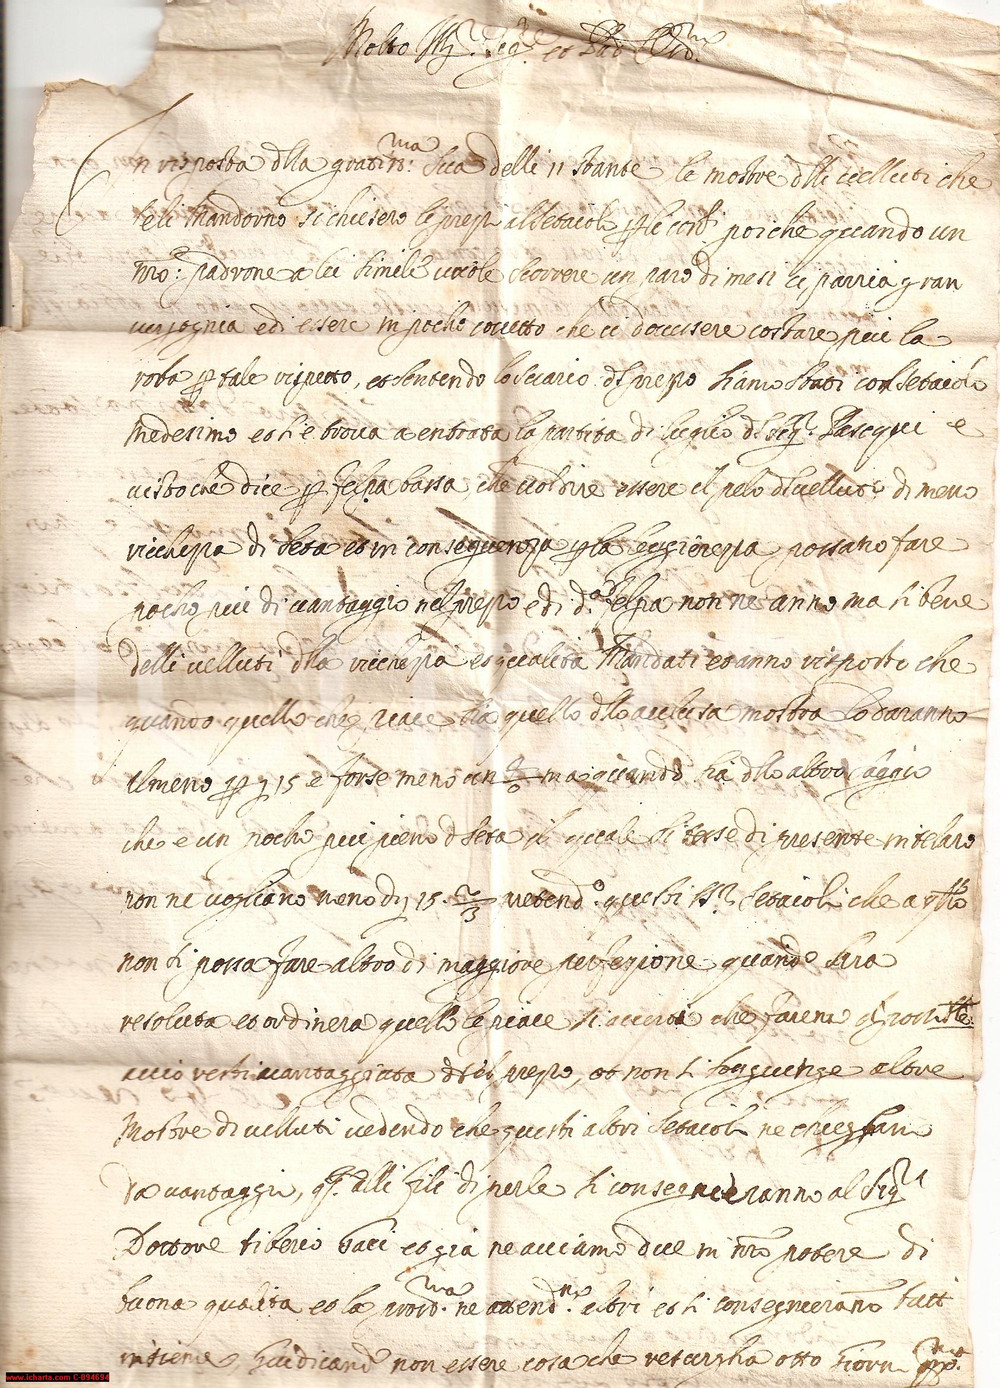 Molto Ill.re Sig.re et Pad. Oss.mo
In risposta dlla gratiss.ma Sua delli 11 stante le mostre dlli velluti che
seli mandorno si chiesero le prezi al Setaiolo p li costi poiche quando un
nro: padrone a lei simile vuole scorrere un paro di mesi ci parria gran
vergognia ed essere in pocho concetto che ci dovessere costare più la
roba p tale rispetto, et sentendo lo svario dl prezo siamo stati con Setaiolo
medesimo et si è trova a entrata la partita di luglio dl Sig.r Pasequi e
visto che dice p felpa bassa che vol dire essere il pelo dl velluto di meno
richeza di seta et in conseguenza p la leggiereza possano fare
pocho più di vantaggio nel prezo e di d.a felpa non ne anno ma si bene
delli velluti dlla richeza et qualità mandati et anno risposto che
quando quello che piace sia quello dllo acclusa mostra lo daranno
almeno p 15 e forse meno un ma quando sia dllo altro saggio
che è un pocho più pieno d seta il quale si tesse di presente in telaro
non ne vogliano meno di 15 2/3 questi SS.ri Setaioli che a p.sto
non si possa fare altro di maggiore perfezione, quando sarà
resoluta et ordinerà quello le piace si accerti che faremo
acciò resti avantaggiata del prezo, et non si soggiunge altre
mostre di velluti vedendo che questi altri Setaioli ne
da vantaggio, alli fili di perle si consegnieranno al Sig.r
Dottore Tiberio et già ne acciamo due in nro potere di
buona qualità et la pross.ma ne attend.mo altri et si consegnieranno tutti
insieme giudicando non essere cosa che otto giorni
www.icharta.com C-094694